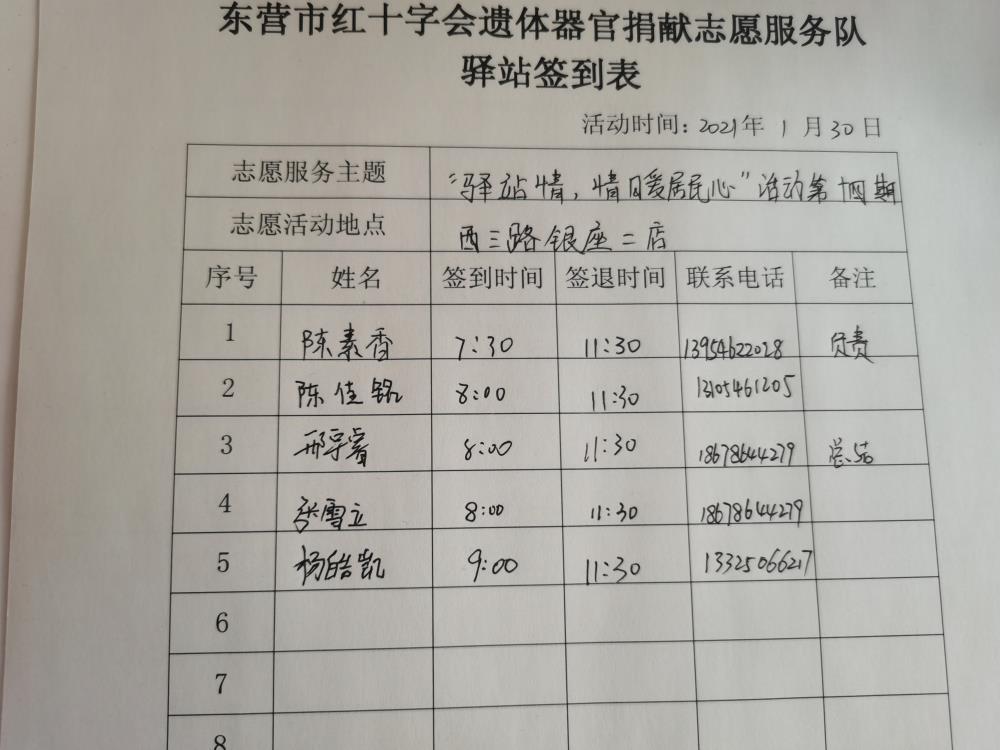 东营市红十字会遗体器官捐献志愿服务队
驿站签到表
活动时间：2021年 1 月 30 日
志愿服务主题 “驿站情，情暖居民心”活动第十四期
志愿活动地点 西三路银座二店
序号 姓名 签到时间 签退时间 联系电话 备注
1 陈素香 7:30 11:30 13954622028 负责
2 陈佳铭 8:00 11:30 13105461205
3 邢宇睿 8:00 11:30 18678644279 总结
4 张雪立 8:00 11:30 18678644279
5 杨皓凯 9:00 11:30 13325066217
6
7
8